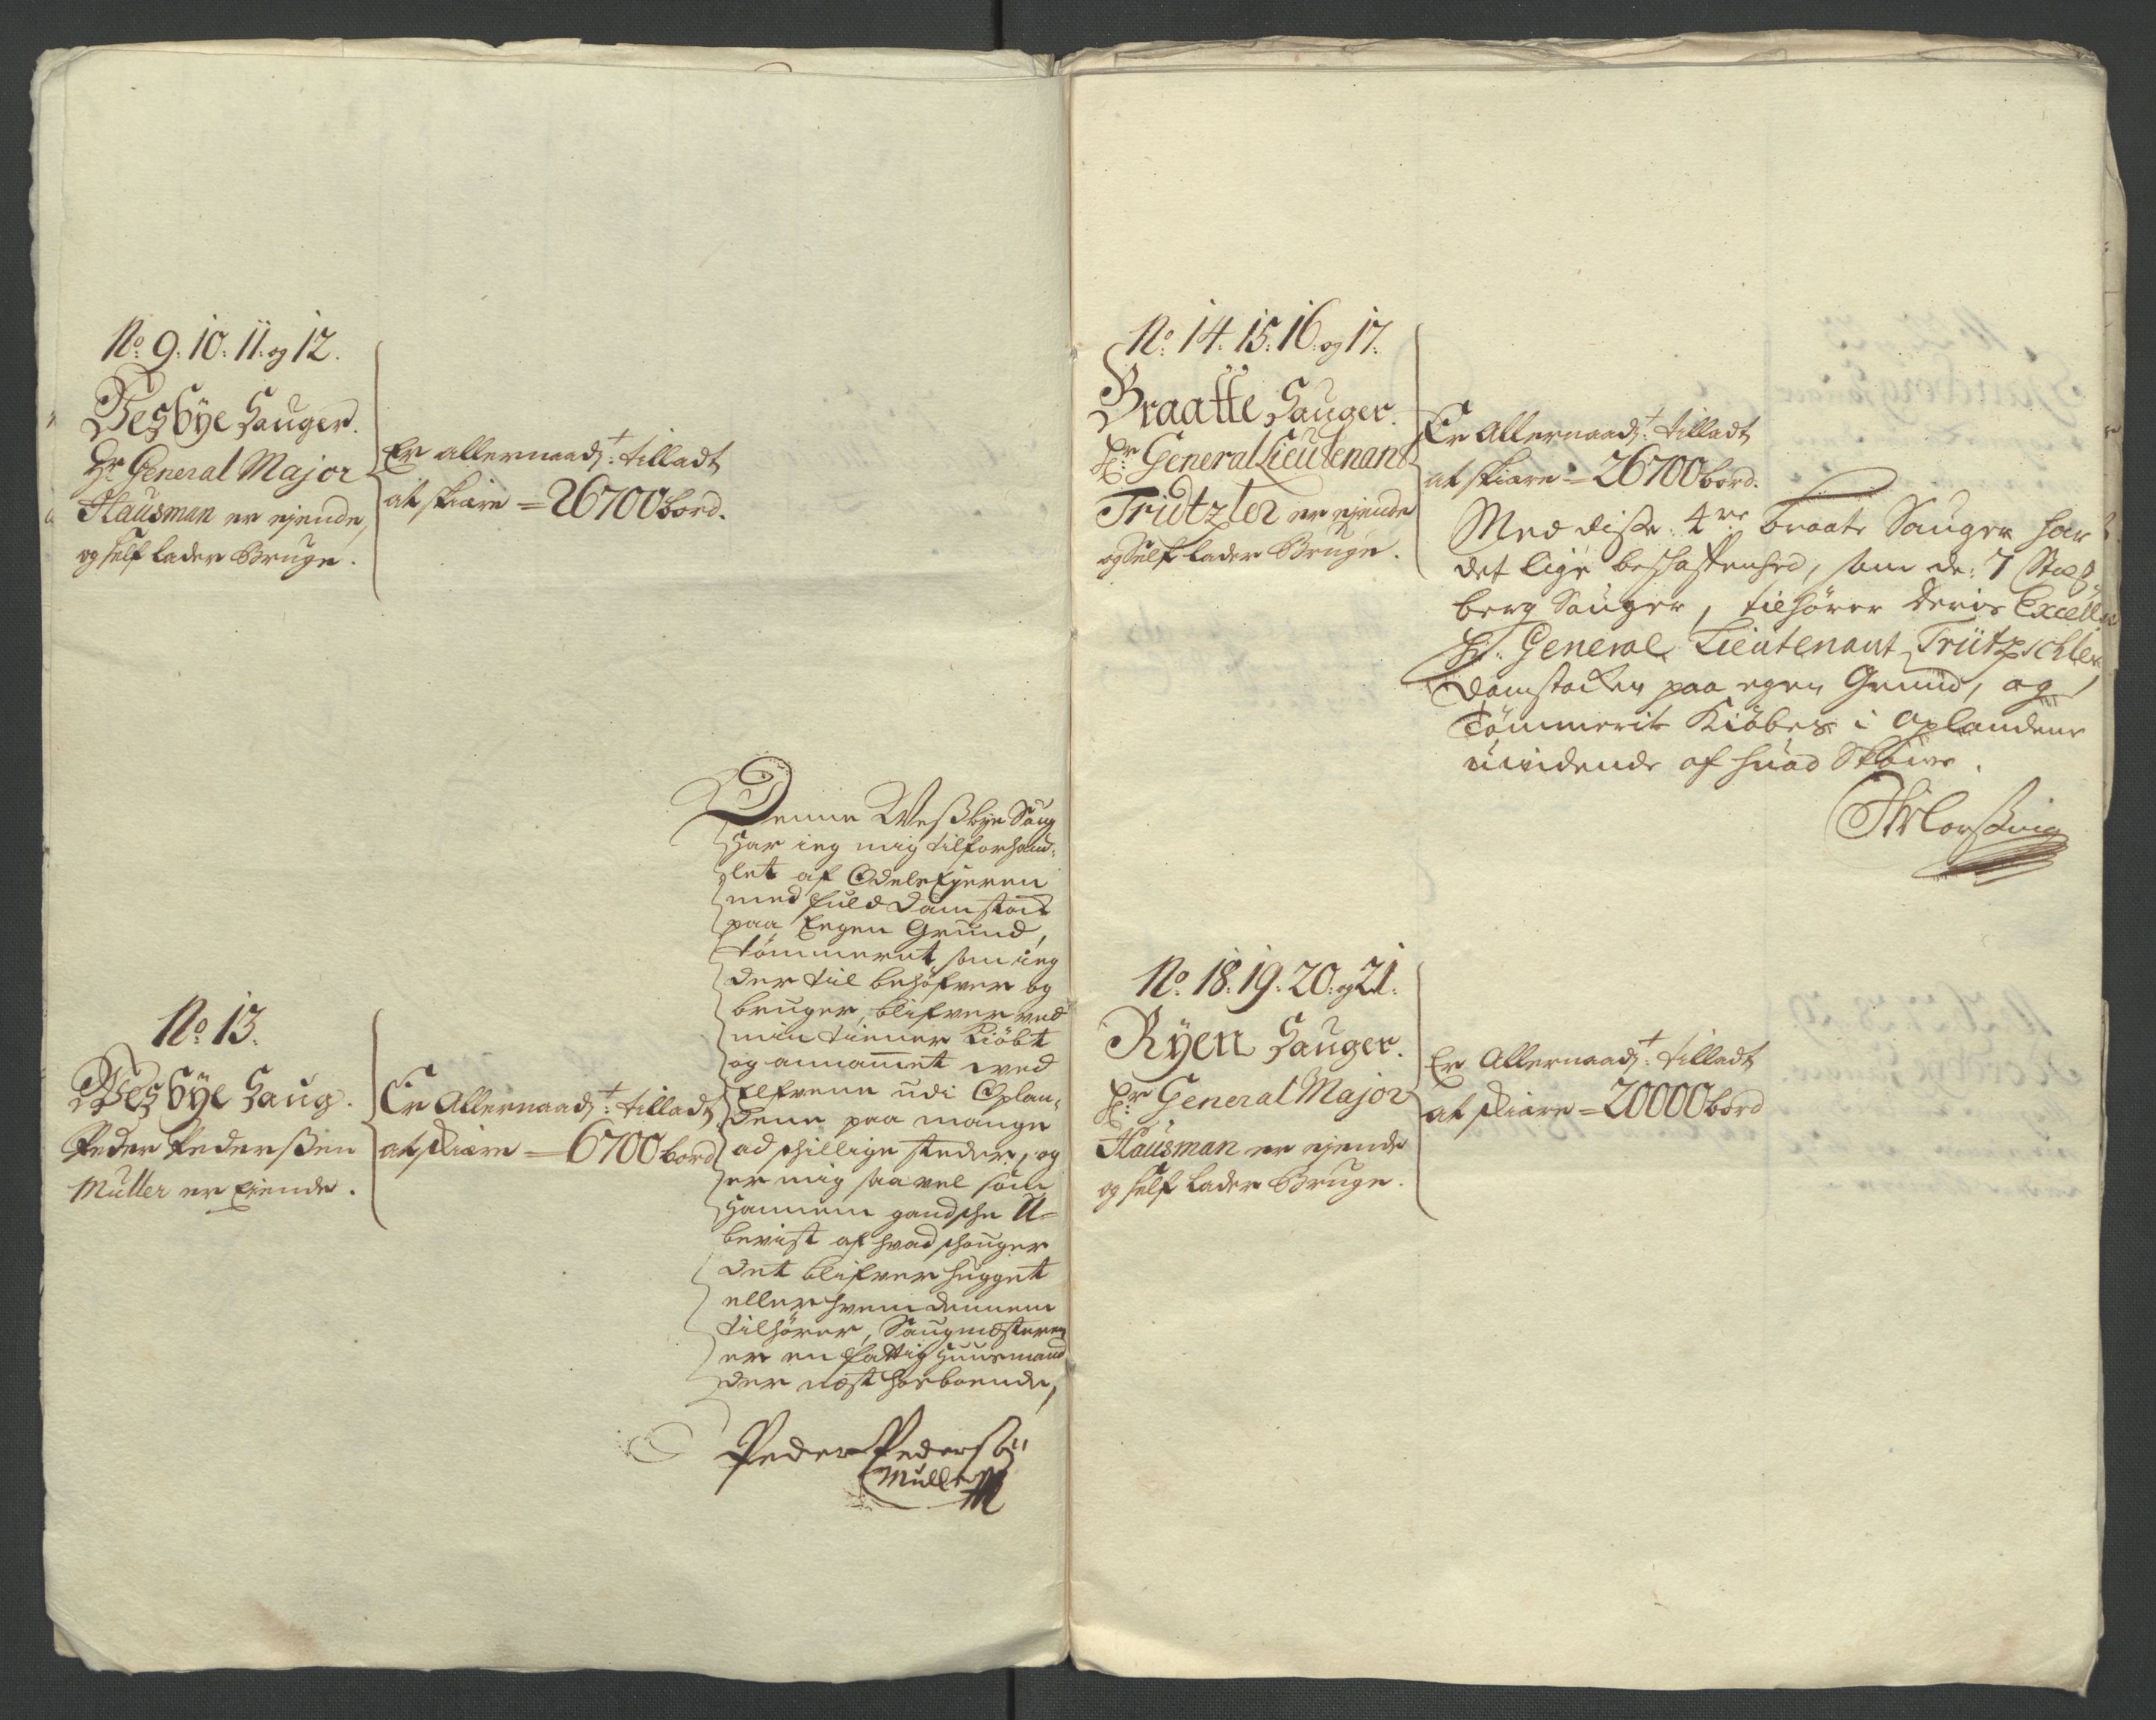 No: 9. 10. 11. og 12.
Vesbÿe Sauger.
Hr General Major
Hausman er ejende,
og self lader Bruge.
Er allernaadt: tilladt
at skiære = 26700 bord.
No: 13.
Vesbÿe Saug.
Peder Pederßen
Muller er Ejende.
Er Allernaadt: tilladt
at skiære = 6700 bord
Denne Weßbye Saug
Har ieg mig tilforhand,
let af Odels Ejeren
med fuld Damstock
paa Eegen Grund,
tømmeret, som ieg
der til behøfver og
bruger, blifver ved
min tiener Kiöbt
og annammet ved
Elfvene udi Oplan,
dene paa mange
adskillige steder, og
er mig saa vel som
Hannem gandske U-
bevist af hvad schouger
det blifver hugget
eller hvem dennem
tilhører, Saugmesteren
er en fattig Huusmand
der næst hosboende,
Peder Pedersøn
Muller
No: 14. 15. 16. og 17.
Braatte Sauger.
Hr: General Lieutenant
Trutzler er ejende
og Self lader Bruge.
Er Allernaadt: tilladt
at skiære = 26700 bord.
Med diße 4re Braate Sauger har
det lige beskaffenhed, som de: 7
berg Sauger, tilhører deris Excell
Hr. General Lieutenant Trützschler,
Damstocken paa egen Grund, og
Tömmerit Kiöbes i Oplandene
uvidende af huad Skove.
No: 18. 19. 20. og 21.
Rÿen Sauger.
Hr General Major
Hausman er ejende
og self lader Bruge.
Er Allernaadt: tilladt
at skiære = 20000 bord